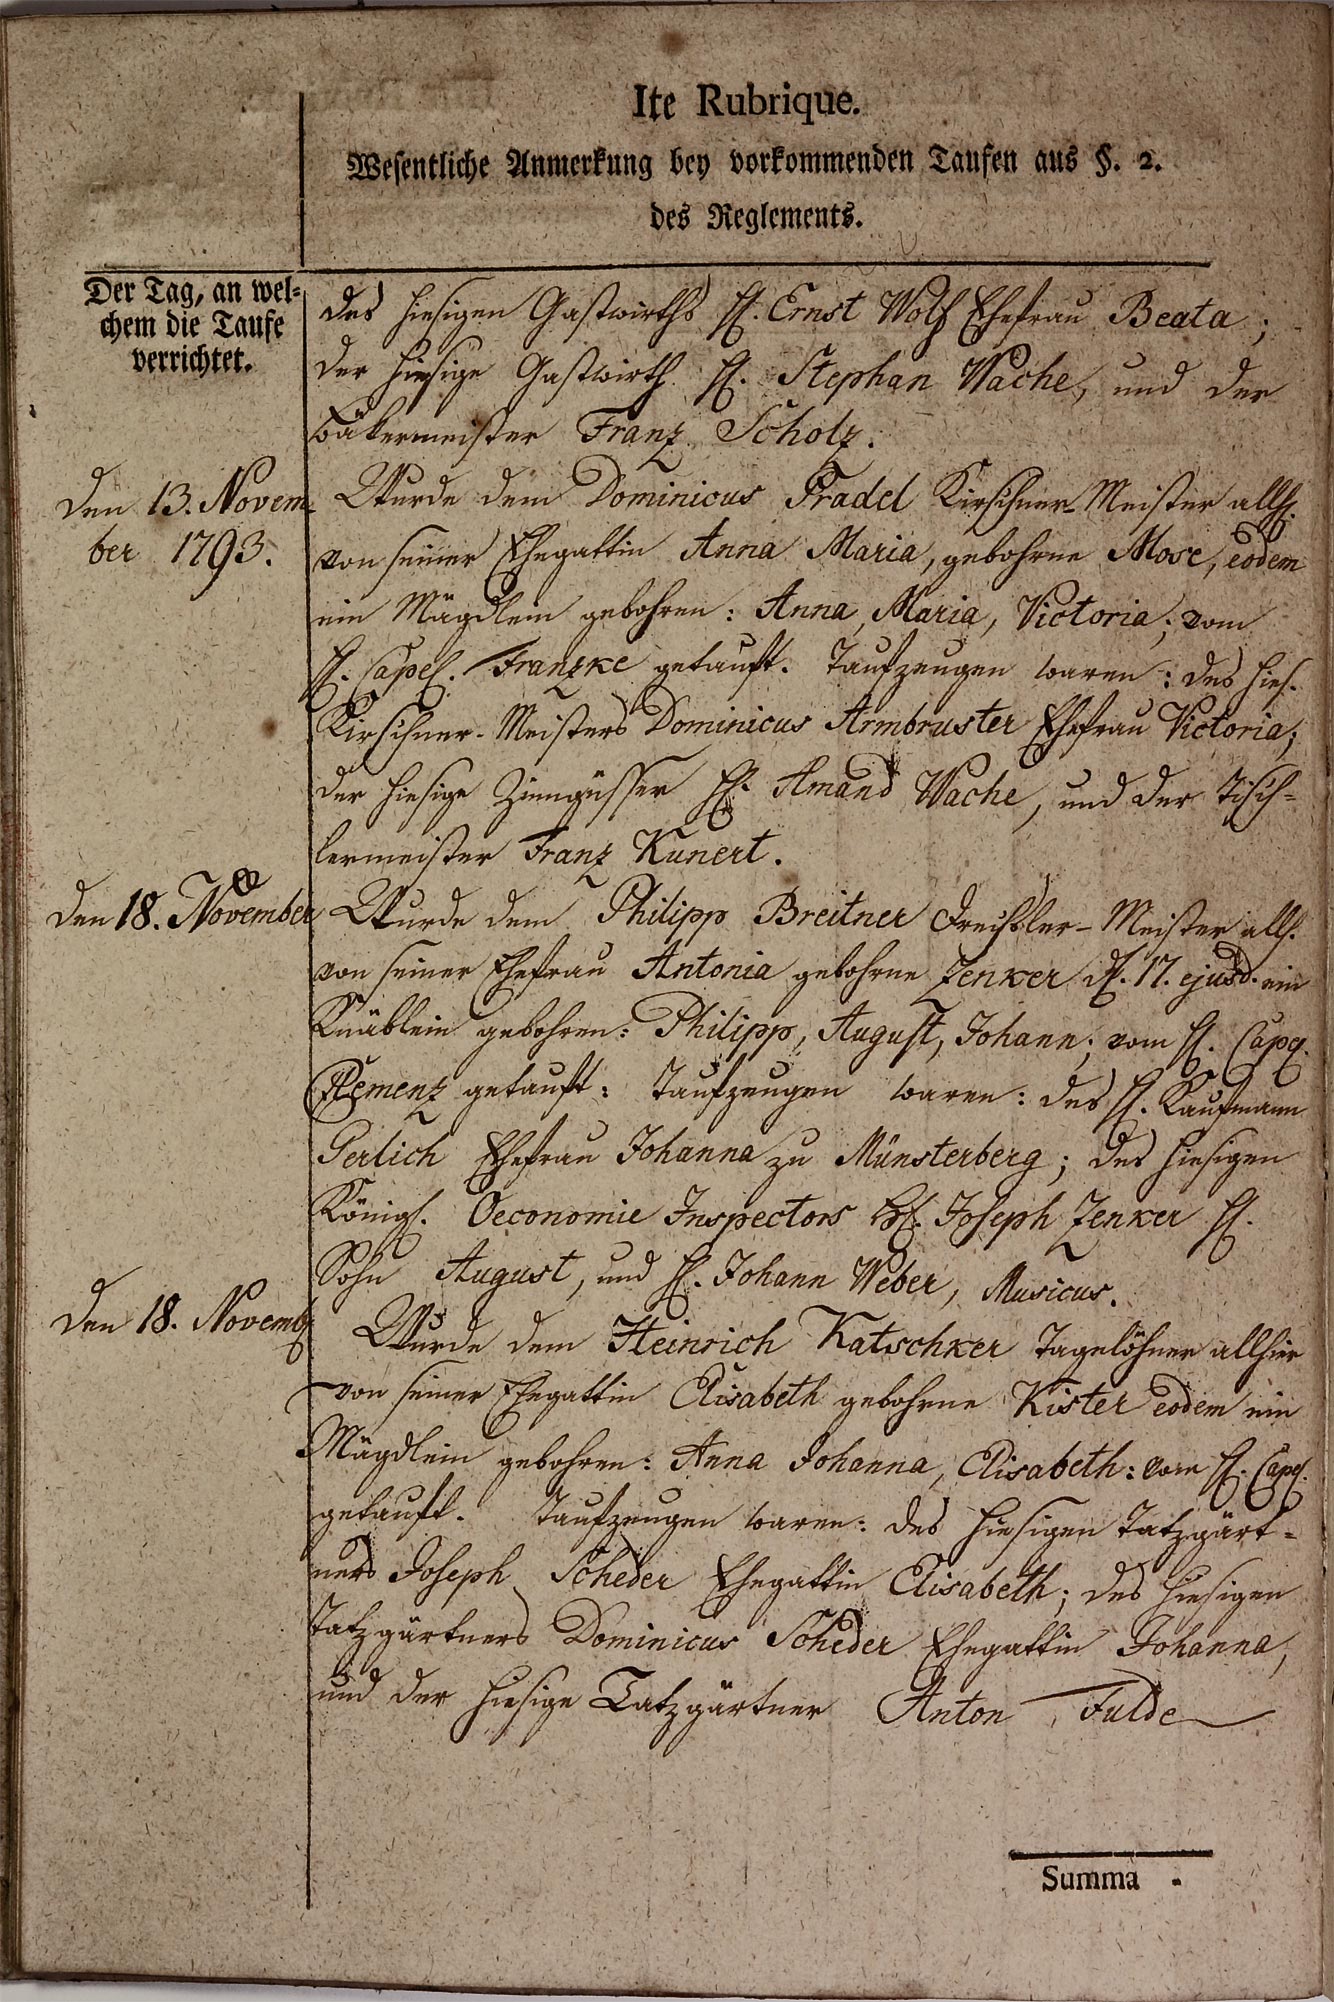 Ite Rubrique.
Wesentliche Anmerkung bey vorkommenden Taufen aus §. 2.
des Reglements.
Der Tag, an wel-
chem die Taufe
verrichtet.
des hiesigen Gastwirths H. Ernst Wolf Ehefrau Beata;
der hiesige Gastwirth H. Stephan Wache, und der
Bäkermeister Franz Scholz.
Den 13. Novem-
ber 1793.
Wurde dem Dominicus Pradel Kirschner-Meister allh.
von seiner Ehegattin Anna Maria, gebohrne Mose, eodem
ein Mägdlein gebohren: Anna, Maria, Victoria; vom
H. Capel. Franzke getauft. Taufzeugen waren: des hies.
Kirschner-Meisters Dominicus Armbruster Ehefrau Victoria;
der hiesige Zinngüsser H. Amand Wache, und der Tisch-
lermeister Franz Kunert.
Den 18. November
Wurde dem Philipp Breitner Drechsler-Meister allh.
von seiner Ehefrau Antonia gebohrne Zenker d. 17. ejusd. ein
Knäblein gebohren: Philipp, August, Johann; vom H. Capel.
Klemenz getauft: Taufzeugen waren: des H. Kaufmann
Gerlich Ehefrau Johanna zu Münsterberg; des hiesigen
Königl. Oeconomie Inspectors H. Joseph Zenker H.
Sohn August, und H. Johann Weber, Musicus.
Den 18. Novemb.
Wurde dem Heinrich Katschker Tagelöhner allhier
von seiner Ehegattin Elisabeth gebohrne Kister eodem ein
Mägdlein gebohren: Anna Johanna, Elisabeth: vom H. Capel.
getauft. Taufzeugen waren: des hiesigen Tatzgärt-
ners Joseph Scheder Ehegattin Elisabeth; des hiesigen
Tatzgärtners Dominicus Scheder Ehegattin Johanna,
und der hiesige Tatzgärtner Anton Fulde
Summa -